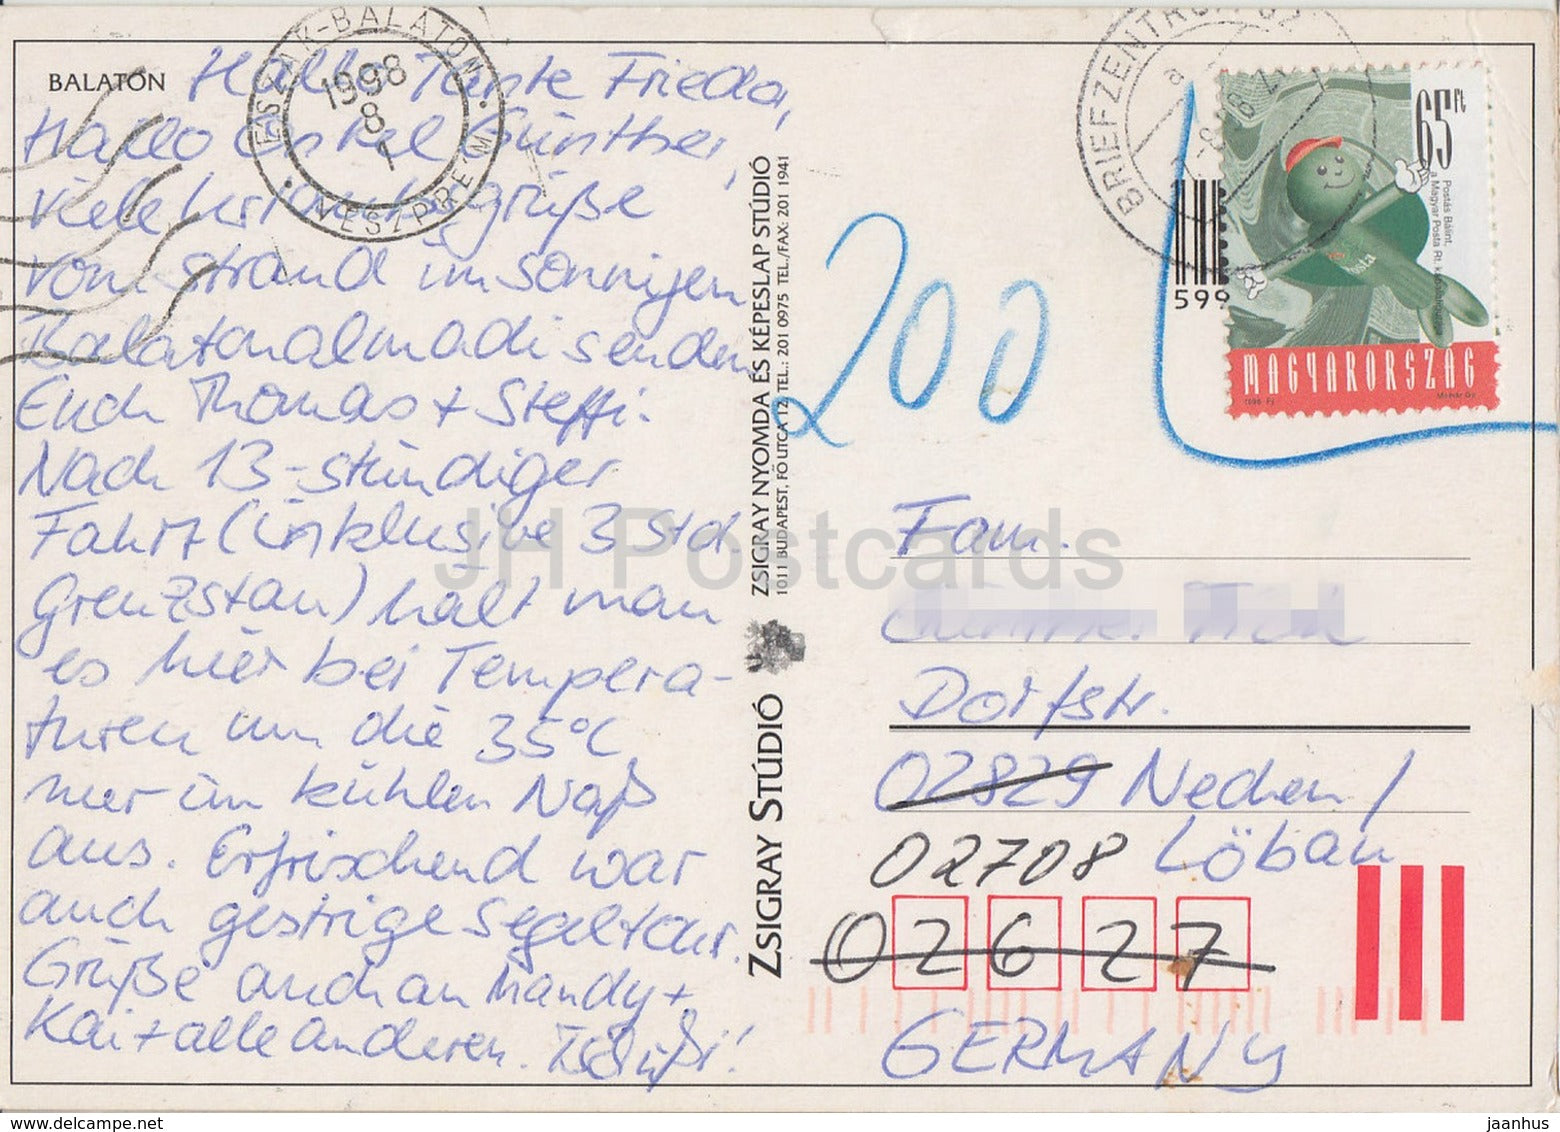 BALATON
Hallo Tante Frieda,
Hallo Onkel Günther,
viele Urlaubsgrüße
vom Strand im sonnigen
Balatonalmadi senden
Euch Thomas + Steffi.
Nach 13-stündiger
Fahrt (inklusive 3 Std.
Grenzstau) hält man
es hier bei Tempera-
turen um die 35°C
nur im kühlen Naß
aus. Erfrischend war
auch gestrige Segeltour.
Grüße auch an Mandy +
Kai + alle anderen. Tschüßi!
ÉSZAK-BALATON
1998
8
1
VESZPRÉM
ZSIGRAY STÚDIÓ
ZSIGRAY NYOMDA ÉS KÉPESLAP STÚDIÓ
1011 BUDAPEST, FŐ UTCA 12. TEL.: 201 0975 TEL./FAX: 201 1941
BRIEFZENTRUM 02
200
599
65 Ft
Postás Bálint,
a Magyar Posta Rt.
MAGYARORSZÁG
Fam.
Dorfstr.
02829 Nechen /
02708 Löbau
02627
GERMANY
JH Postcards
jaanhus
www.delcampe.net